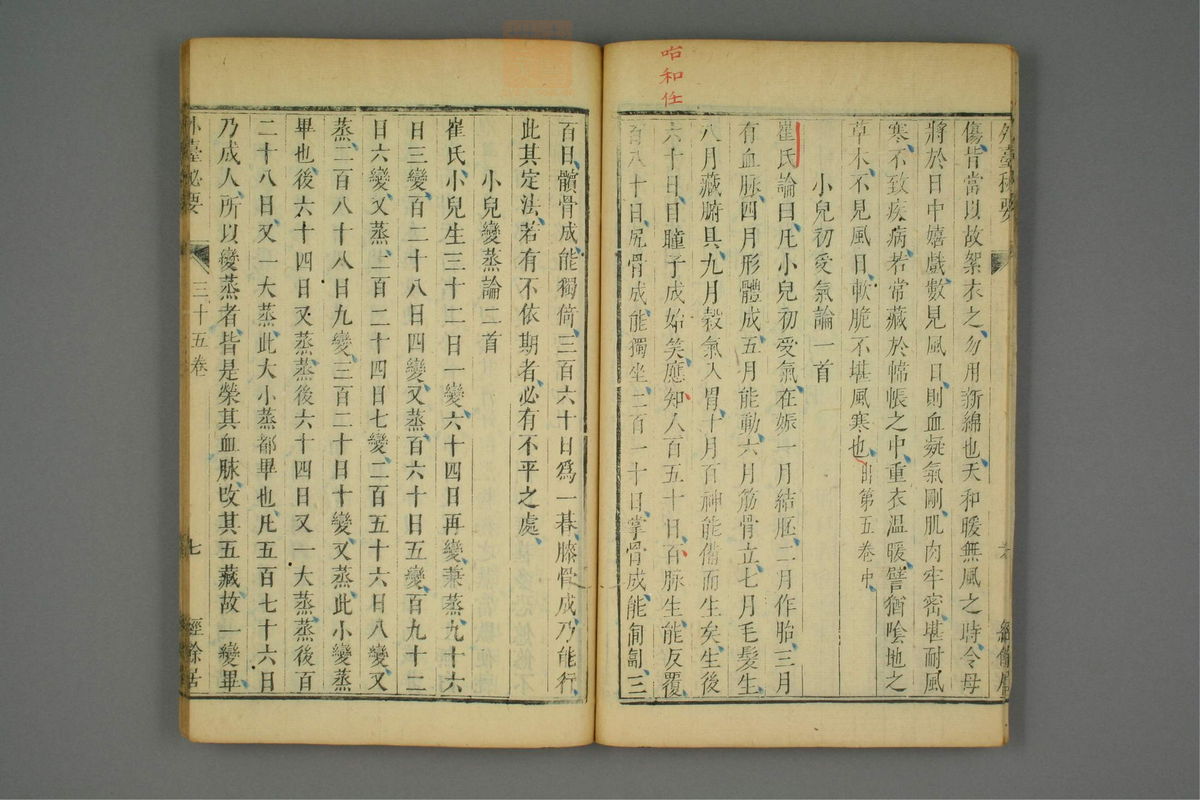 咍和任
外臺秘要
經餘居
傷皆當以故絮衣之勿用新綿也天和暖無風之時令母
將於日中嬉戲數見風日則血凝氣剛肌肉牢密堪耐風
寒不致疾病若常藏於幃帳之中重衣温暖譬猶陰地之
草木不見風日軟脆不堪風寒也出第五卷中
小兒初受氣論一首
崔氏論曰凡小兒初受氣在娠一月結胚二月作胎三月
有血脉四月形體成五月能動六月筋骨立七月毛髮生
八月藏腑具九月穀氣入胃十月百神能備而生矣生後
六十日目瞳子成始笑應知人百五十日百脉生能反覆
百八十日尻骨成能獨坐二百一十日掌骨成能匍匐三
百日髕骨成能獨倚三百六十日爲一朞膝骨成乃能行
此其定法若有不依期者必有不平之處
小兒變蒸論二首
崔氏小兒生三十二日一變六十四日再變兼蒸九十六
日三變百二十八日四變又蒸百六十日五變百九十二
日六變又蒸二百二十四日七變二百五十六日八變又
蒸二百八十八日九變三百二十日十變又蒸此小變蒸
畢也後六十四日又蒸蒸後六十四日又一大蒸蒸後百
二十八日又一大蒸此大小蒸都畢也凡五百七十六日
乃成人所以變蒸者皆是榮其血脉改其五藏故一變畢
外臺秘要
三十五卷
七
經餘居